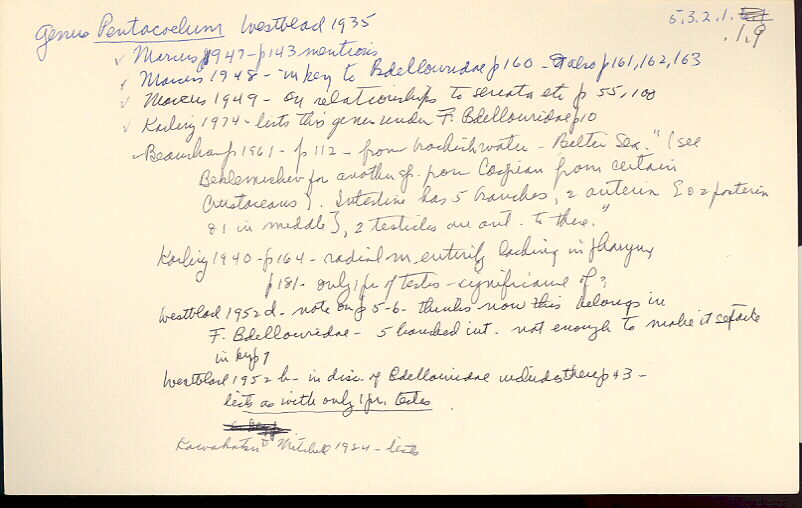 Genus Pentacoelum Westblad 1935
5.3.2.1.
.1.9
✓ Marcus 1947 - p143 mentions
✓ Marcus 1948 - in key to Bdellouridae p160 - also p161, 162, 163
✓ Marcus 1949 - on relationships to seriata etc p 55, 100
✓ Karling 1974 - lists this genus under F. Bdellouridae p10
Beauchamp 1961 - p112 - from brackish water - Baltic Sea." (see
Beklemischev for another sp. from Caspian from certain
Crustaceans). Intestine has 5 branches, 2 anterior & 2 posterior
& 1 in middle}, 2 testicles are ant. to these."
Karling 1940 - p164 - radial m. entirely lacking in pharynx
p181 - only 1 pr of testes - significance of?
Westblad 1952d - note on p 5-6 - thinks now this belongs in
F. Bdellouridae - 5 branched int. not enough to make it separate
in
Westblad 1952 b - in disc. of Bdellouridae includes there p 43 -
lists as with only 1 pr. testes
Kawakatsu & Mitchell 1984 - lists